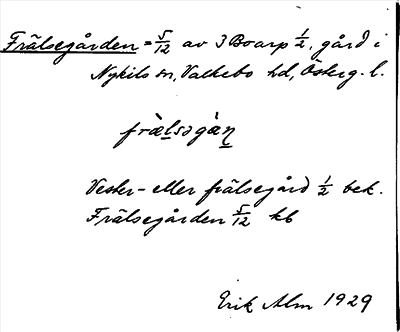 Frälsegården = 5/12 av 3 Boarp 1/2, gård i
Nykils sn, Valkebo hd, Österg. l.
frälsgàn
Vester- eller frälsegård 1/2 bek.
Frälsegården 5/12 kb
Erik Alm 1929